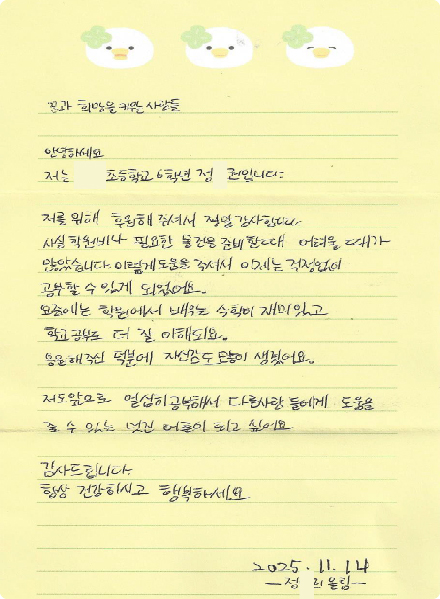 꿈과 희망을 키우는 사람들
안녕하세요
저는 초등학교 6학년 정 입니다.
저를 위해 후원해 주셔서 정말 감사합니다.
사실 학원비나 필요한 물건을 준비할 때 어려울 때가
많았습니다. 이렇게 도움을 주셔서 이제는 걱정없이
공부할 수 있게 되었어요.
요즘에는 학원에서 배우는 수학이 재미있고
학교 공부도 더 잘 이해되요.
응원해주신 덕분에 자신감도 많이 생겼어요.
저도 앞으로 열심히 공부해서 다른사람들에게 도움을
줄 수 있는 멋진 어른이 되고 싶어요
감사드립니다.
항상 건강하시고 행복하세요
2025.11.14
올림-